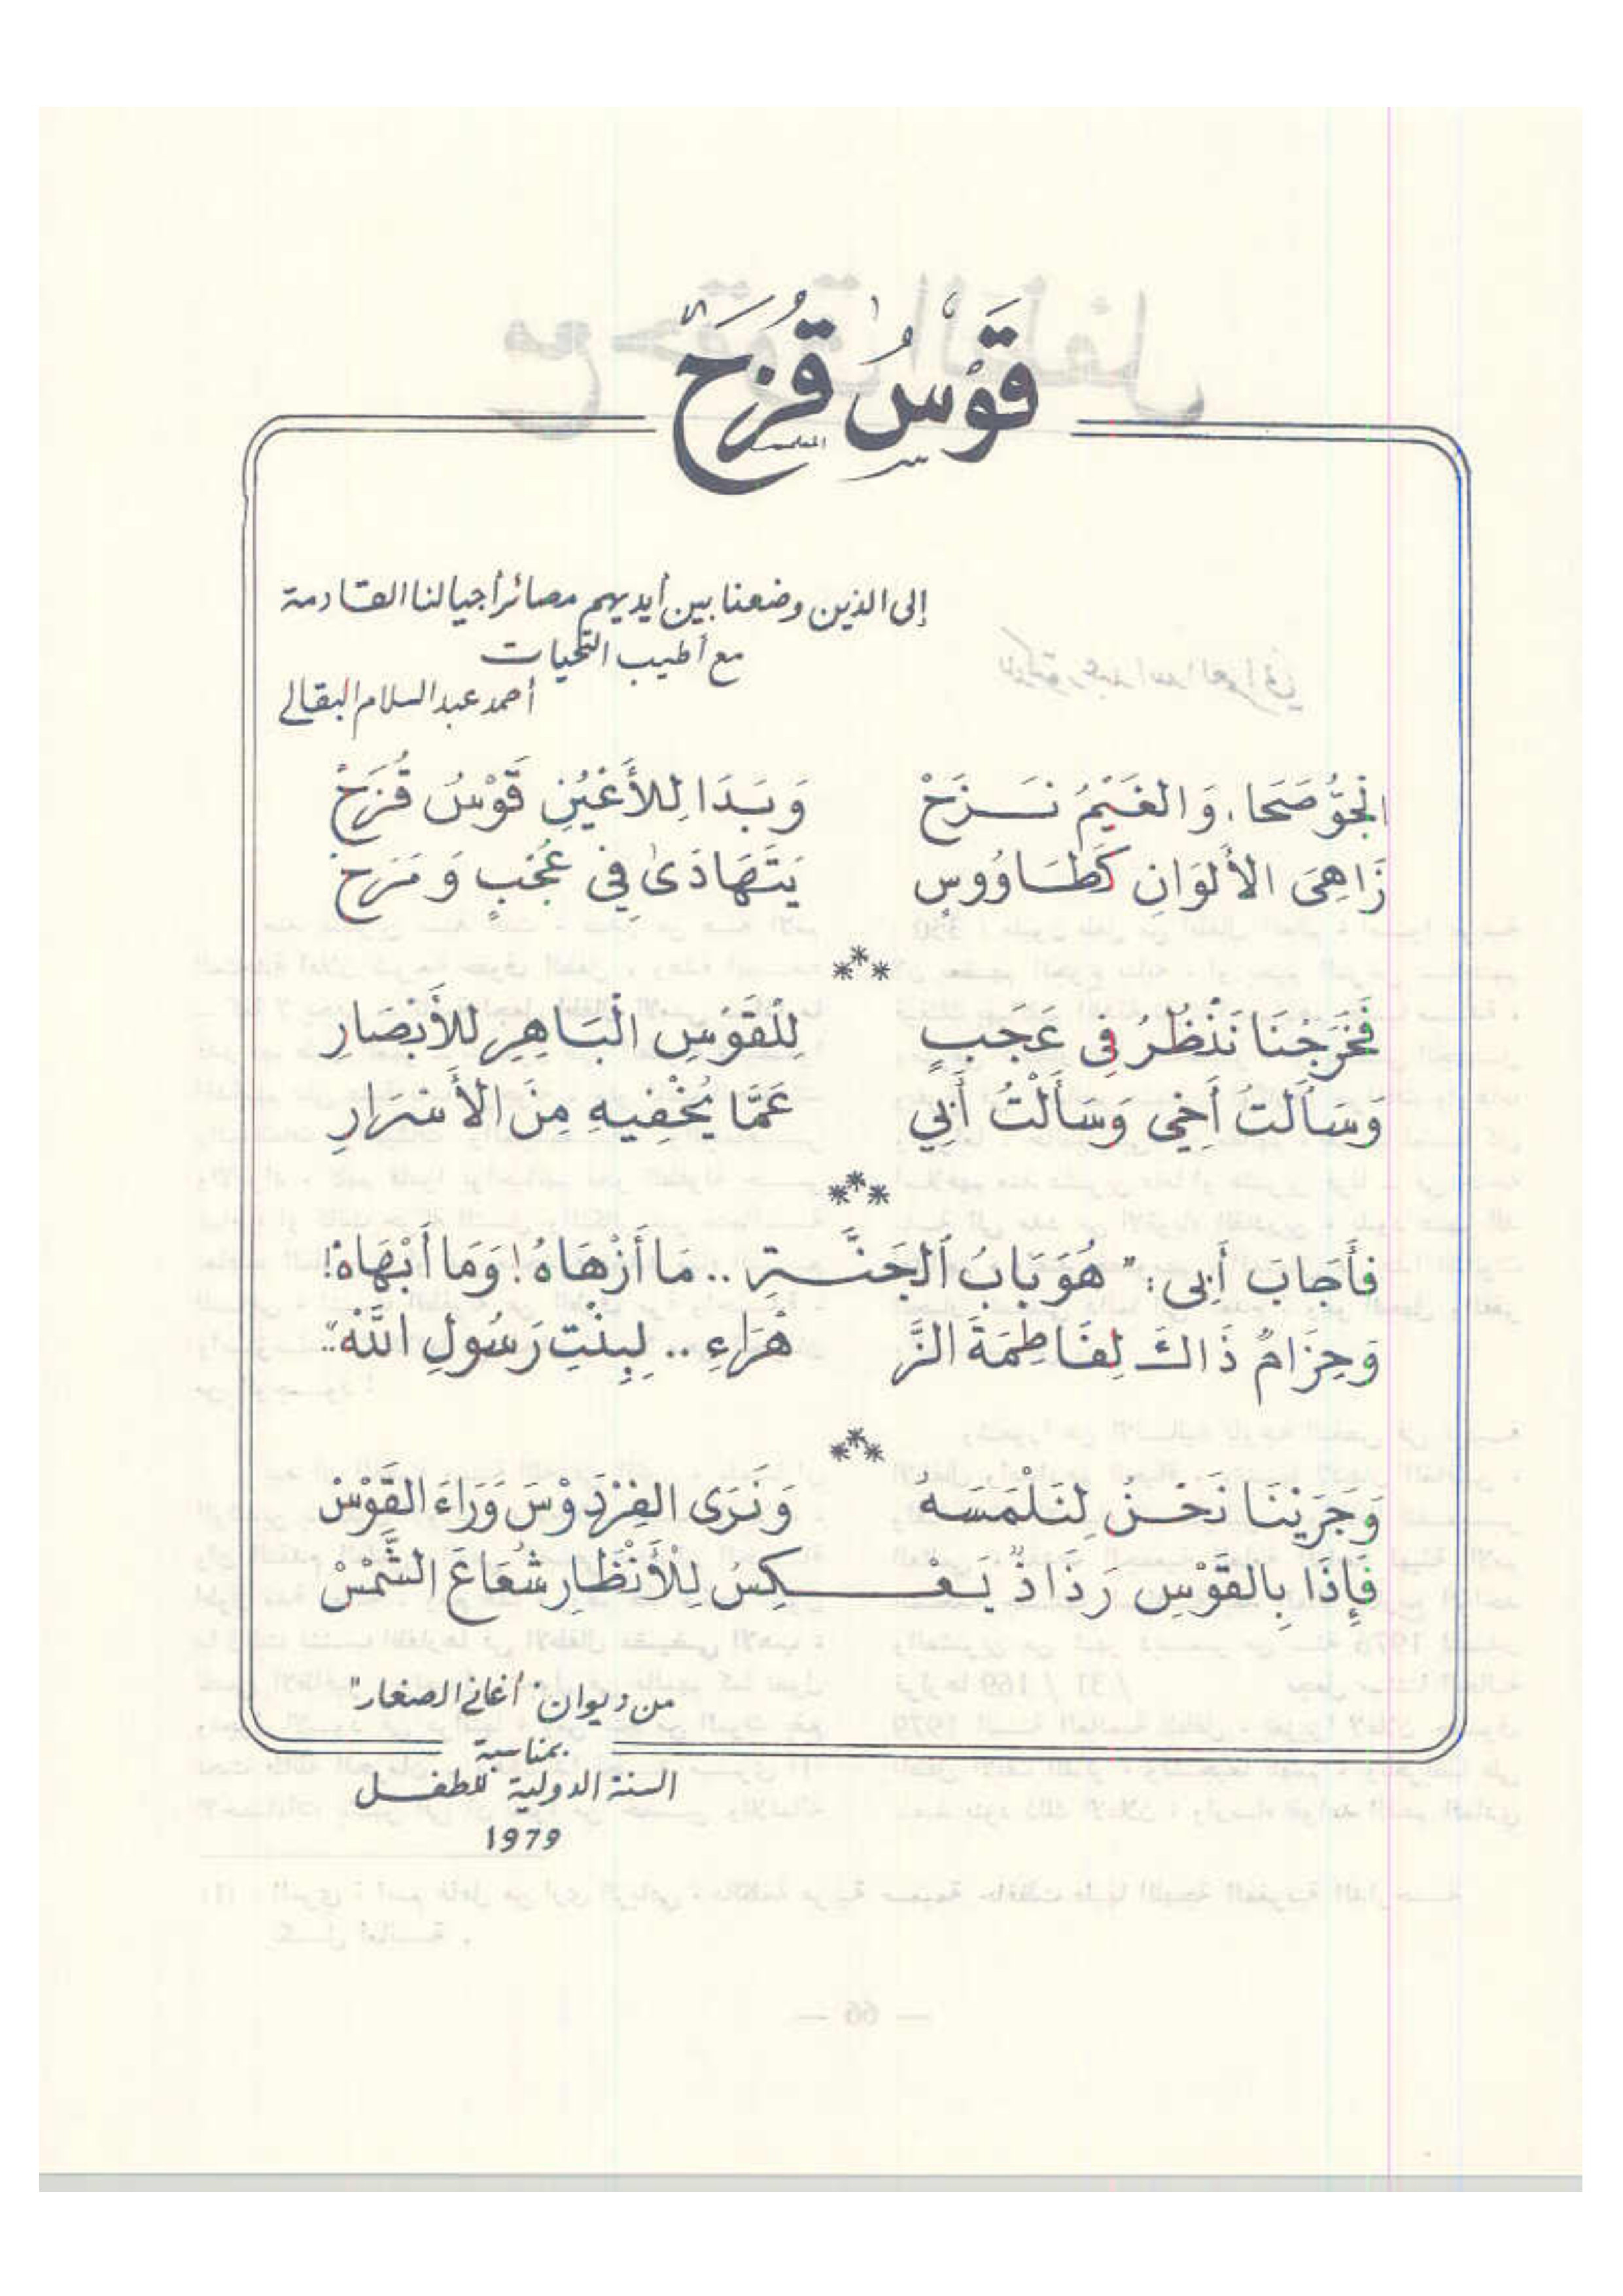 قَوْسُ قُزَحْ
إلى الذين وضعنا بين أيديهم مصائر أجيالنا القادمة
مع أطيب التحيات
أحمد عبد السلام البقالي
الجَوُّ صَحَا، وَالغَيْمُ نَـــزَحْ وَبَـدَا لِلأَعْيُنِ قَوْسُ قُزَحْ
زَاهِىَ الأَلْوَانِ كَطَـاوُوسٍ يَتَهَادَىٰ فِي عُجْبٍ وَمَرَحْ
***
فَخَرَجْنَا نَنْظُرُ فِى عَجَبٍ لِلْقَوْسِ الْبَاهِرِ لِلأَبْصَارِ
وَسَأَلْتُ أَخِي وَسَأَلْتُ أَبِي عَمَّا يُخْفِيهِ مِنَ الأَسْرَارِ
***
فأَجَابَ أَبِى: "هُوَ بَابُ الْجَنَّـــةِ .. مَا أَزْهَاهُ! وَمَا أَبْهَاهْ!
وَحِزَامٌ ذَاكَ لِفَاطِمَةَ الزَّ هْرَاءِ .. لِبِنْتِ رَسُولِ اللَّهْ".
***
وَجَرَيْنَا نَحْـنُ لِنَلْمَسَهُ وَنَرَى الفِرْدَوْسَ وَرَاءَ القَوْسْ
فَإِذَا بِالقَوْسِ رَذَاذٌ يَـعْـــــكِسُ لِلْأَنْظَارِ شُعَاعَ الشَّمْسْ
من ديوان "أغاني الصغار"
بمناسبة
السنة الدولية للطفـــل
1979